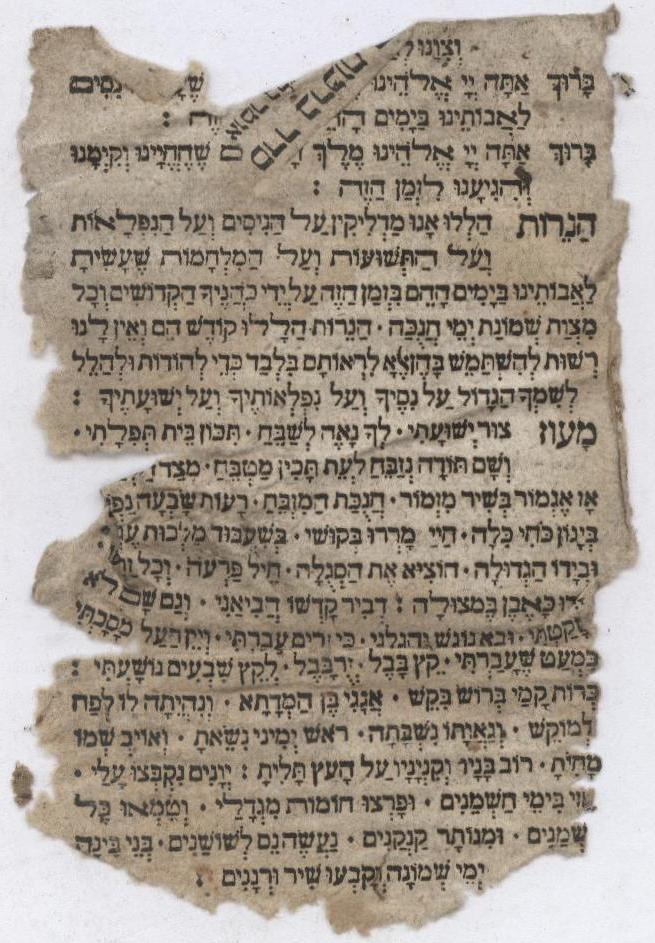 וְצִוָּנוּ
בָּרוּךְ אַתָּה יְיָ אֱלֹהֵינוּ נִסִּים
לַאֲבוֹתֵינוּ בַּיָּמִים :
בָּרוּךְ אַתָּה יְיָ אֱלֹהֵינוּ מֶלֶךְ שֶׁהֶחֱיָינוּ וְקִיְּמָנוּ
וְהִגִּיעָנוּ לַזְּמַן הַזֶּה :
סדר ברכות
הַנֵּרוֹת הַלָּלוּ אָנוּ מַדְלִיקִין עַל הַנִּיסִים וְעַל הַנִּפְלָאוֹת
וְעַל הַתְּשׁוּעוֹת וְעַל הַמִּלְחָמוֹת שֶׁעָשִׂיתָ
לַאֲבוֹתֵינוּ בַּיָּמִים הָהֵם בַּזְּמַן הַזֶּה עַל יְדֵי כֹּהֲנֶיךָ הַקְּדוֹשִׁים וְכָל
מִצְוַת שְׁמוֹנַת יְמֵי חֲנֻכָּה · הַנֵּרוֹת הַלָּלוּ קוֹדֶשׁ הֵם וְאֵין לָנוּ
רְשׁוּת לְהִשְׁתַּמֵּשׁ בָּהֶן אֶלָּא לִרְאוֹתָם בִּלְבַד כְּדֵי לְהוֹדוֹת וּלְהַלֵּל
לְשִׁמְךָ הַגָּדוֹל עַל נִסֶּיךָ וְעַל נִפְלְאוֹתֶיךָ וְעַל יְשׁוּעָתֶיךָ :
מָעוֹז צוּר יְשׁוּעָתִי · לְךָ נָאֶה לְשַׁבֵּחַ · תִּכּוֹן בֵּית תְּפִלָּתִי ·
וְשָׁם תּוֹדָה נְזַבֵּחַ לְעֵת תָּכִין מַטְבֵּחַ ·
אָז אֶגְמוֹר בְּשִׁיר מִזְמוֹר · חֲנֻכַּת הַמִּזְבֵּחַ · רָעוֹת שָׂבְעָה
בְּיָגוֹן כֹּחִי כִּלָּה · חַיַּי מָרְרוּ בְּקוֹשִׁי · בְּשִׁעְבּוּד מַלְכוּת
וּבְיָדוֹ הַגְּדוּלָה · הוֹצִיא אֶת הַסְּגֻלָּה · חֵיל פַּרְעֹה · וְכָל
כְּאֶבֶן בִּמְצוּלָה : דְּבִיר קָדְשׁוֹ הֱבִיאַנִי · וְגַם שָׁם לֹא
שָׁקַטְתִּי · וּבָא נוֹגֵשׂ וְהִגְלַנִי · כִּי זָרִים עָבַדְתִּי · וְיֵין רַעַל מָסַכְתִּי
כִּמְעַט שֶׁעָבַרְתִּי · קֵץ בָּבֶל · זְרֻבָּבֶל · לְקֵץ שִׁבְעִים נוֹשָׁעְתִּי :
כְּרוֹת קָמַי בְּרוֹשׁ בִּקֵּשׁ · אֲגָגִי בֶּן הַמְּדָתָא · וְנִהְיָתָה לוֹ לְפַח
לְמוֹקֵשׁ · וְגַאֲוָתוֹ נִשְׁבָּתָה · רֹאשׁ יְמִינִי נִשֵּׂאתָ · וְאוֹיֵב שְׁמוֹ
מָחִיתָ · רוֹב בָּנָיו וְקִנְיָנָיו עַל הָעֵץ תָּלִיתָ : יְוָנִים נִקְבְּצוּ עָלַי ·
בִּימֵי חַשְׁמַנִּים · וּפָרְצוּ חוֹמוֹת מִגְדָּלַי · וְטִמְּאוּ כָּל
שְׁמָנִים · וּמִנּוֹתָר קַנְקַנִּים · נַעֲשָׂה נֵס לְשׁוֹשַׁנִּים · בְּנֵי בִינָה
יְמֵי שְׁמוֹנָה וְקָבְעוּ שִׁיר וּרְנָנִים :